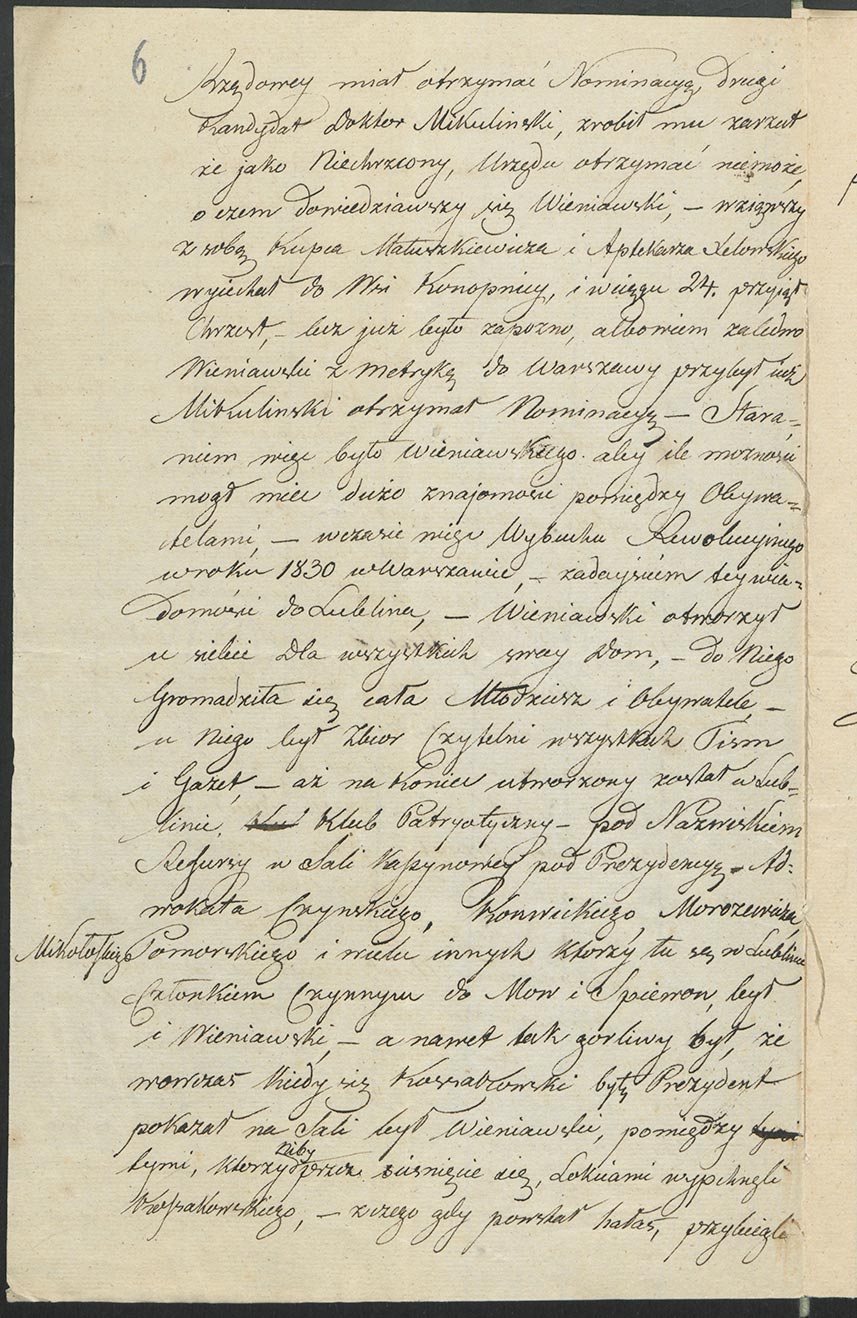 6
Krzędowey miał otrzymać Nominacyą, Drugi
Kandydat Doktor Mikulinski, zrobił mu zarzut
że jako Niechrzcony, Urzędu otrzymać niemoże,
o czem Dowiedziawszy się Wieniawski, – wziąwszy
z sobą Kupca Matuszkiewicza i Aptekarza
wyiechał do Wsi Konopnicy, i wciągu 24. przyiął
Chrzest, – lecz już było zapozno, albowiem zaledwo
Wieniawski z Metryką do Warszawy przybył iuż
Mikulinski otrzymał Nominacyą – Stara=
niem więc było Wieniawskiego aby ile moznosci
mogł miec dużo znajomosci pomiędzy Obywa=
telami, – wczasie więc Wybuchu Rewolucyjnego
wroku 1830 w Warszawie, – zadaysciem tey wia=
Domości do Lublina, – Wieniawski otworzył
u siebie Dla wszystkich swoy Dom, – do Niego
Gromadziła się cała Młodziesz i Obywatele, –
u Niego był Zbior Czytelni wszystkich Pism
i Gazet, – aż na Koniec utworzony został w Lub=
linie, Klub Patryotyczny – pod Nazwiskiem
Resursy w Sali Kassynowey pod Prezydencyą – Ad=
wokata Czynskiego, Konwickiego, Morozewicza,
Mikołaskiego Pomorskiego i wielu innych ktorzy tu są w Lublinie
Członkiem Czynnym do Mow i Spiewow, był
i Wieniawski, – a nawet tak gorliwy był, że
wowczas kiedy się Kossakowski były Prezydent
pokazał na Sali był Wieniawski, pomiędzy
tymi, ktorzy niby przez sisnięcie się, Łokciami wypchnęli
Kossakowskiego, – zczego gdy powstał hałas, przybiegli